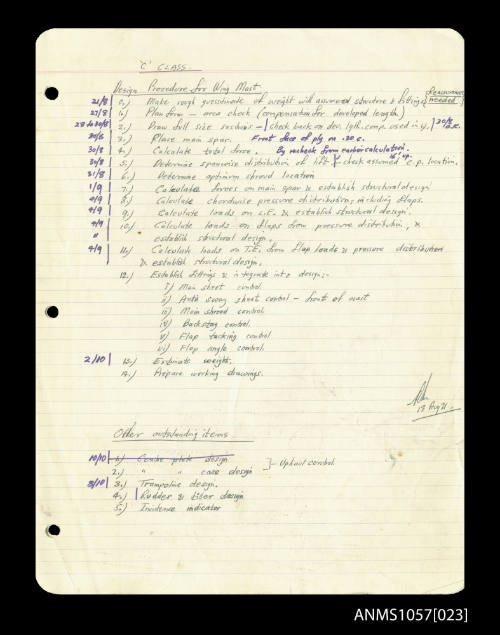 'C' CLASS.
Design Procedure for Wing Mast
21/8 0.) Make rough guesstimate of weight with assumed structure & fittings needed
27/8 1.) Planform - area check (compensation for developed length)
28 to 30/8 2.) Draw full size sections - check back on dev. lgth. comp. used in 1.) 30/8
30/8 3.) Place main spar. Front face of ply on .20 c.
30/8 4.) Calculate total force. By recheck from earlier calculation.
30/8 5.) Determine spanwise distribution of lift - check assumed c.p. location.
31/8 6.) Determine optimum shroud location
1/9 7.) Calculate forces on main spar & establish structural design
4/9 8.) Calculate chordwise pressure distribution, including flaps.
4/9 9.) Calculate loads on L.E. & establish structural design.
4/9 10.) Calculate loads on flaps from pressure distribution, &
" establish structural design.
4/9 11.) Calculate loads on T.E. from flap loads & pressure distribution
& establish structural design.
12.) Establish fittings & integrate into design:-
i) Main sheet control
ii) Anti swing sheet control - front of mast
iii) Main shroud control
iv) Backstay control
v) Flap tacking control
vi) Flap angle control.
2/10 13.) Estimate weight.
14.) Prepare working drawings.
13 Aug 71
Other outstanding items.
10/10 1.) Centre plate design
2.) " " case design - Uphaul control
3/10 3.) Trampoline design.
4.) Rudder & tiller design
5.) Incidence indicator
ANMS1057[023]